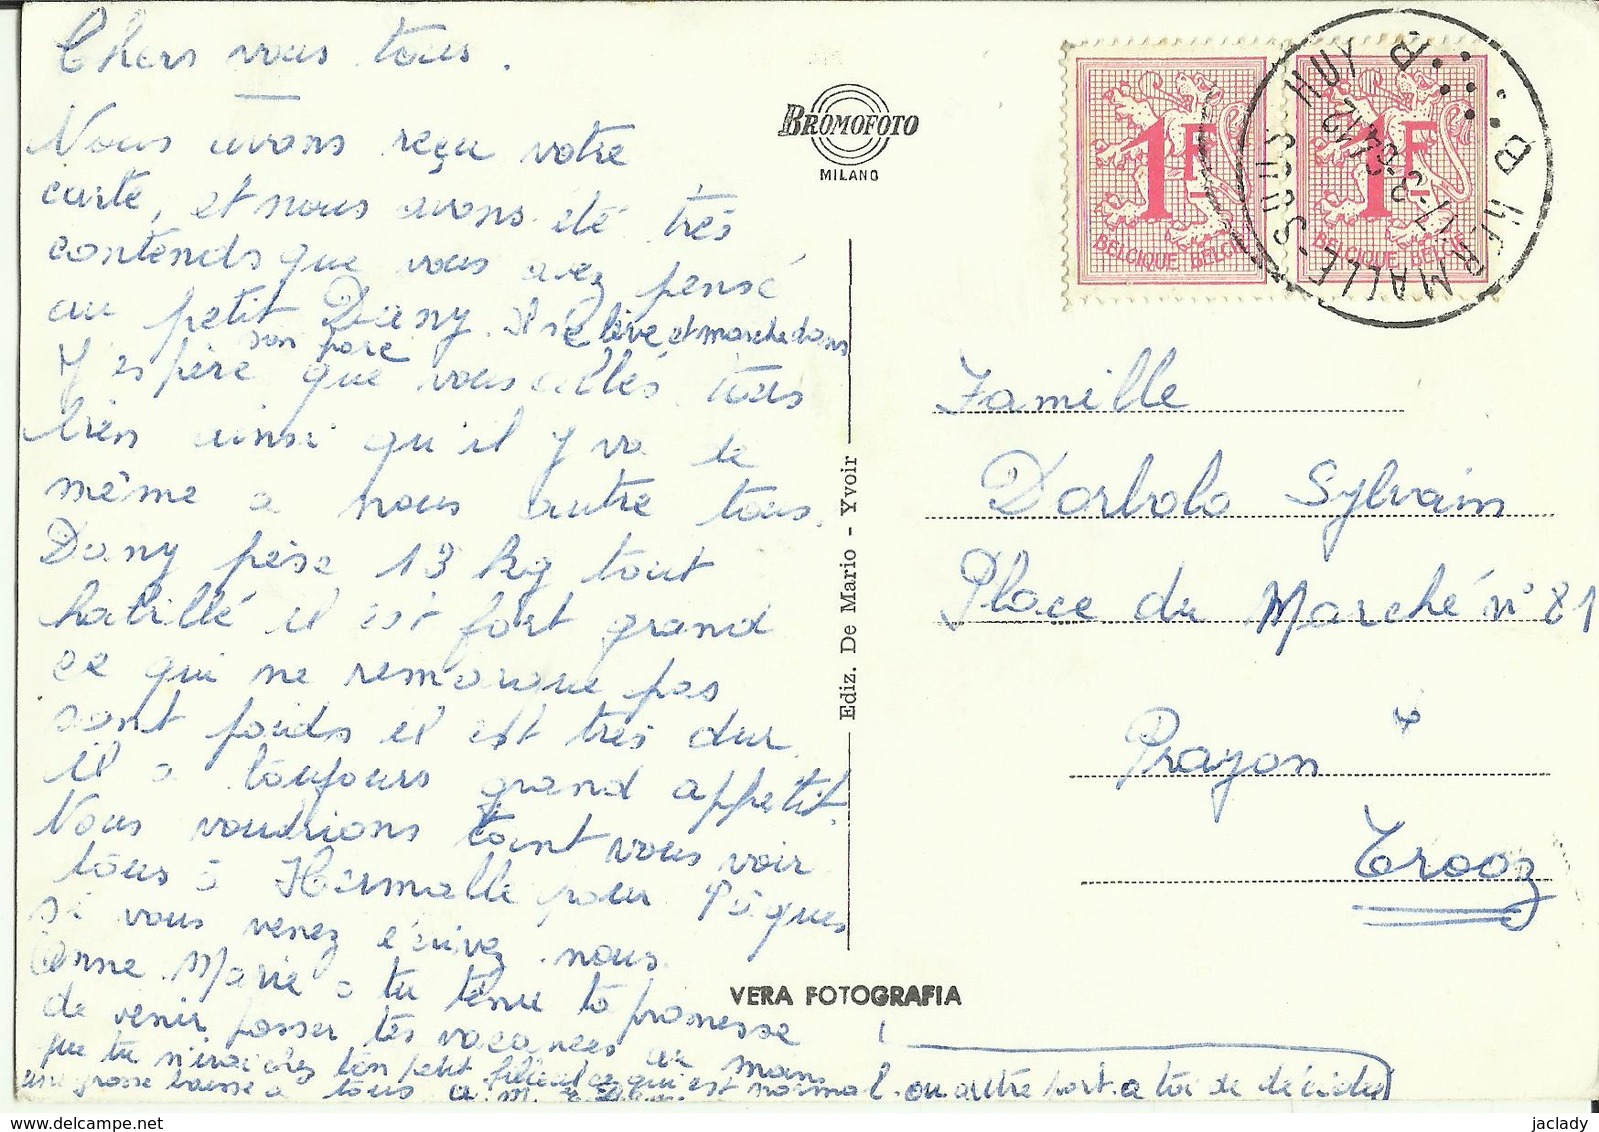 Chers vous tous.
Nous avons reçu votre
carte, et nous avons été très
contends que vous avez pensé
au petit Dany. Il se lève et marche dans
son parc
J'espère que vous allés tous
bien ainsi qu'il y va de
même a nous autre tous.
Dany pèse 13 kg tout
habillé il est fort grand
ce qui ne remarque pas
sont poids il est très dur,
il a toujours grand appetit.
Nous voudrions tant vous voir
tous à Hermalle pour Pâques
si vous venez écrivez nous.
Anne Marie a tu tenu ta promesse
de venir passer tes vacances au
que tu n'irai chez ton petit filleul ce qui est normal. ou autre part. a toi de décider
une grosse baisse a tous
BROMOFOTO
MILANO
Ediz. De Mario - Yvoir
VERA FOTOGRAFIA
1F
BELGIQUE BELGIE
1F
BELGIQUE BELGIE
B HERMALLE-SOUS HUY B
Famille
Dorbolo Sylvain
Place du Marché n° 81
Prayon
Trooz
jaclady